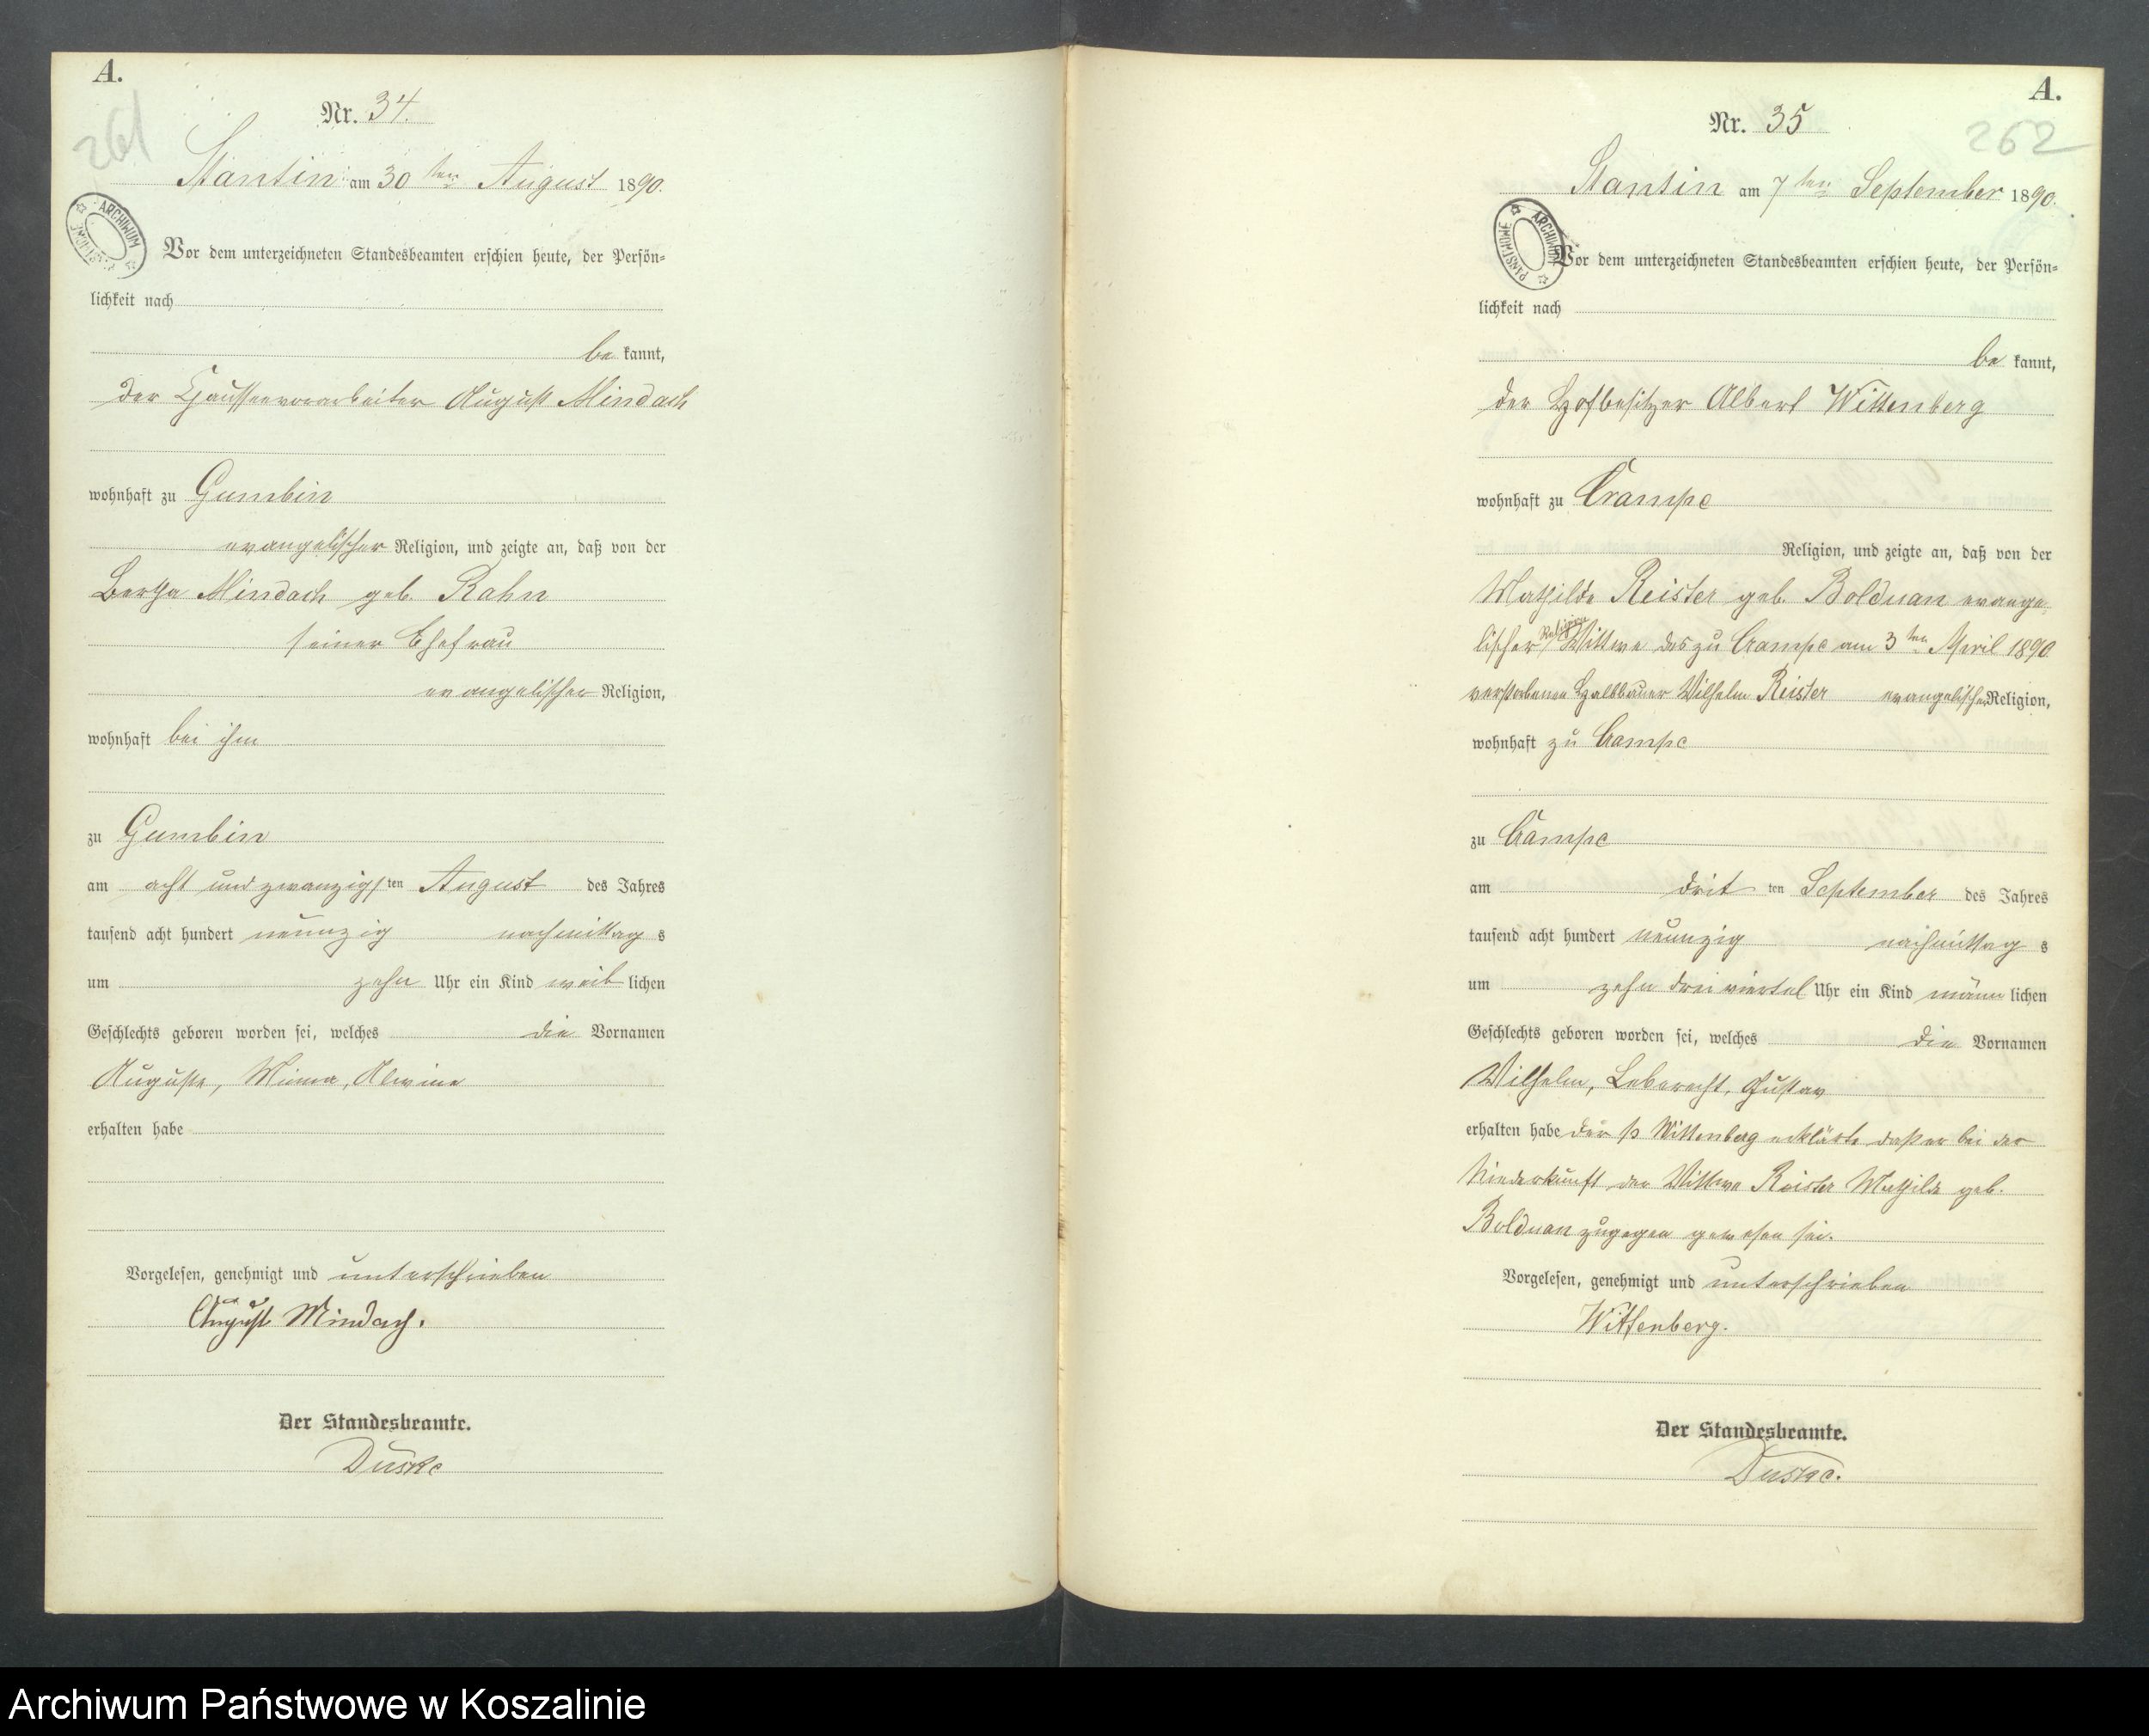 A.
261
Nr. 34.
Stantin am 30ten August 1890.
ARCHIWUM
Vor dem unterzeichneten Standesbeamten erschien heute, der Persön=
lichkeit nach
be kannt,
der Chausseevorarbeiter August Mindach
wohnhaft zu Gumbin
evangelischer Religion, und zeigte an, daß von der
Bertha Mindach geb. Rahn
seiner Ehefrau
evangelischer Religion,
wohnhaft bei ihm
zu Gumbin
am acht und zwanzigsten August des Jahres
tausend acht hundert neunzig nachmittag s
um zehn Uhr ein Kind weib lichen
Geschlechts geboren worden sei, welches die Vornamen
Auguste, Minna, Alwine
erhalten habe
Vorgelesen, genehmigt und unterschrieben
August Mindach.
Der Standesbeamte.
Duske
A.
262
Nr. 35
Stantin am 7ten September 1890.
ARCHIWUM PAŃSTWOWE
Vor dem unterzeichneten Standesbeamten erschien heute, der Persön=
lichkeit nach
be kannt,
der Hofbesitzer Albert Wittenberg
wohnhaft zu Crampe
Religion, und zeigte an, daß von der
Mathilde Reister geb. Bolduan evange-
lischer Religion Wittwe des zu Crampe am 3ten April 1890
verstorbenen Halbbauer Wilhelm Reister evangelischer Religion,
wohnhaft zu Crampe
zu Crampe
am drit ten September des Jahres
tausend acht hundert neunzig nachmittag s
um zehn dreiviertel Uhr ein Kind männ lichen
Geschlechts geboren worden sei, welches die Vornamen
Wilhelm, Leberecht, Gustav
erhalten habe der p Wittenberg erklärte daß er bei der
Niederkunft der Wittwe Reister Mathilde geb.
Bolduan zugegen gewesen sei.
Vorgelesen, genehmigt und unterschrieben
Wittenberg.
Der Standesbeamte.
Duske.
Archiwum Państwowe w Koszalinie